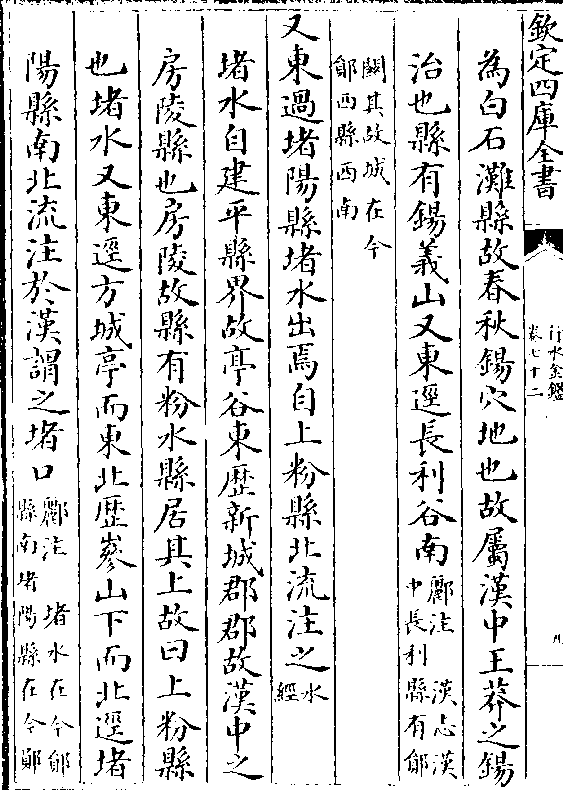 欽定四庫全書
行水金鑑
卷七十二
為白石灘縣故春秋鍚穴地也故屬漢中王莽之鍚
治也縣有鍚義山又東逕長利谷南
酈注 漢志漢
中長利 縣有鄖
關其故城在今
鄖西縣西南
又東過堵陽縣堵水出焉自上粉縣北流注之
水
經
堵水自建平縣界故亭谷東歷新城郡郡故漢中之
房陵縣也房陵故縣有粉水縣居其上故曰上粉縣
也堵水又東逕方城亭而東北歷嵾山下而北逕堵
陽縣南北流注於漢謂之堵口
酈注 堵水在今鄖
縣南堵陽縣在今鄖